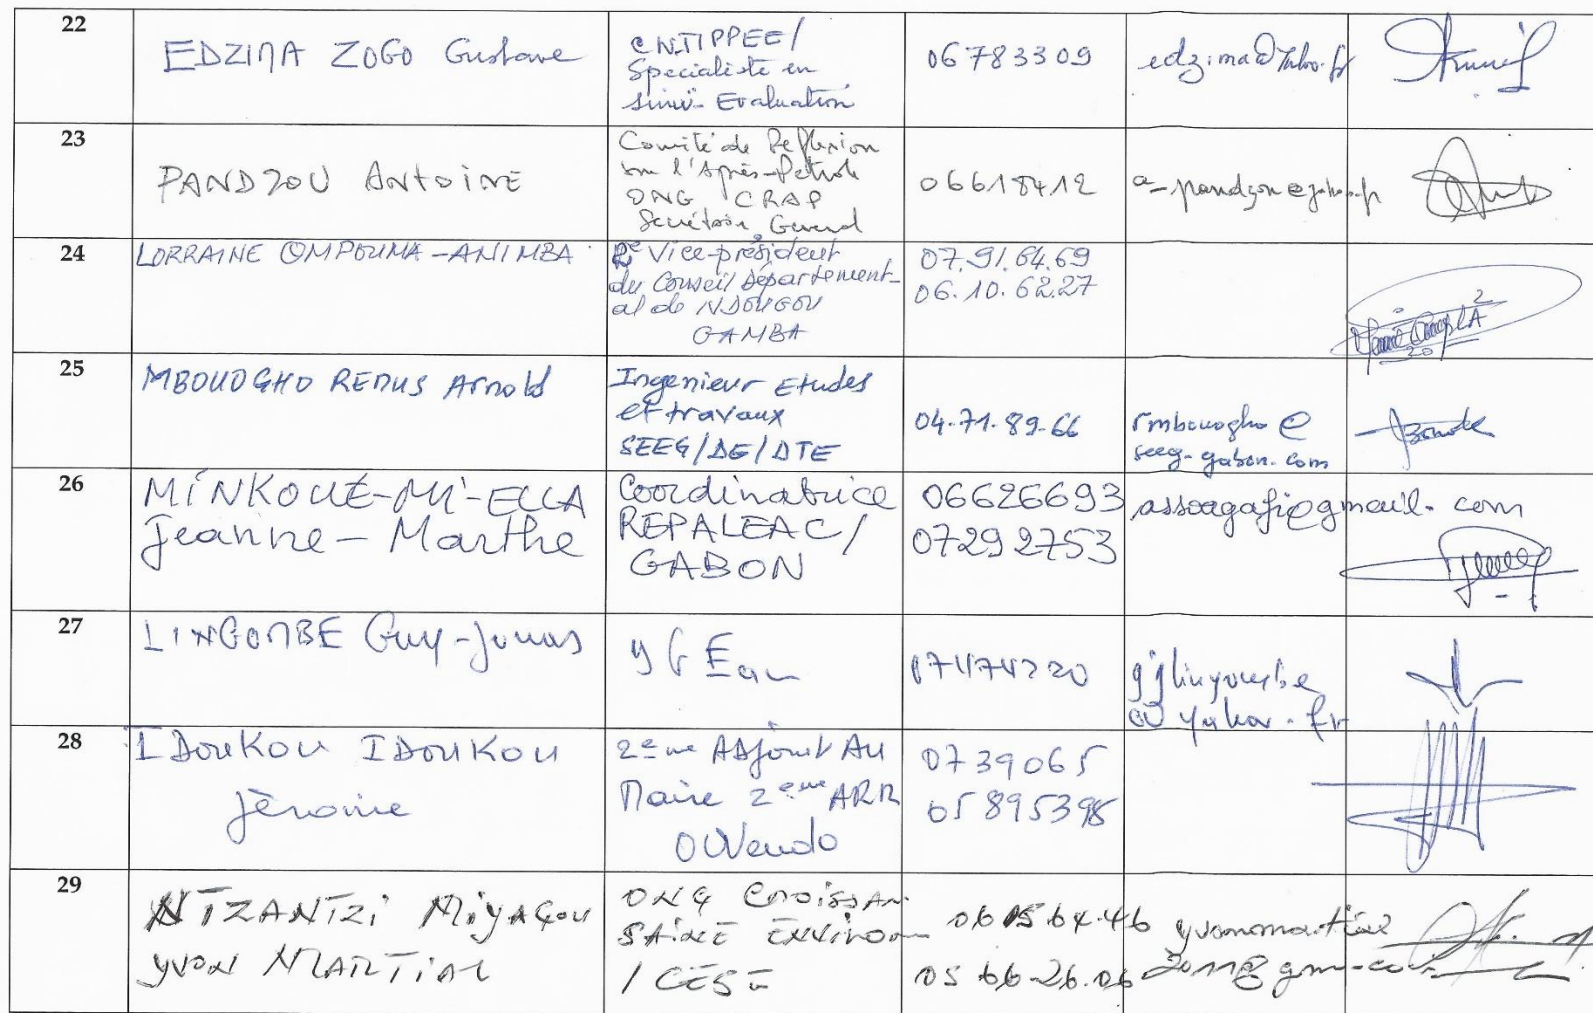 22
EDZIMA ZOGO Gustave
CNTIPPEE/
Specialiste en
Suivi-Evaluation
06783309
edzima@yahoo.fr
23
PANDZOU Antoine
Comité de Réflexion
sur l'Après-Pétrole
ONG CRAP
Secrétaire General
06618412
a_pandzou@yahoo.fr
24
LORRAINE OMPOUMA-ANIMBA
2e Vice-président
du Conseil Département-
al de NDOUGOU
GAMBA
07.91.64.69
06.10.62.27
25
MBOUOGHO REMUS Arnold
Ingenieur Etudes
et travaux
SEEG/DE/DTE
04.71.89.66
rmbouogho@
seeg-gabon.com
26
MINKOUÉ-MI-ELLA
Jeanne-Marthe
Coordinatrice
REPALEAC/
GABON
06626693
07292753
assoagafi@gmail.com
27
LINGOMBE Guy-Jonas
Eau
gjlingombe
@yahoo.fr
28
IDOUKOU IDOUKOU
Jérome
2eme ADjoint Au
Maire 2eme ARR
OWendo
0739065
05895398
29
NTZANTZi Miyagou
YVON MARTIAL
ONG CROISSAN
SAINE ENVIRON
/ CESE
06 15.64.46
05 66-26.06
yvonmartial